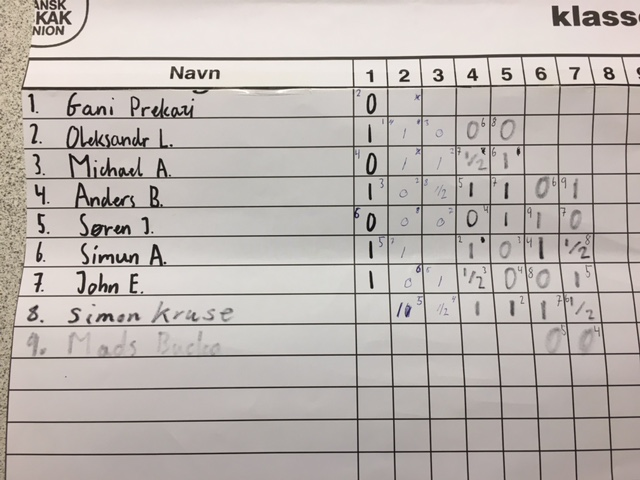 ANSK
KAK
NION
klass
Navn 1 2 3 4 5 6 7 8 9
1. Gani Prekazi 2 0 x
2. Oleksandr L. 1 1 0 0 6 8 0
3. Michael A. 4 0 x 1 1 2 7 1/2 x 6 1
4. Anders B. 1 3 0 2 8 1/2 5 1 7 1 0 6 9 1
5. Søren J. 6 0 0 8 0 2 0 4 1 9 1 7 0
6. Simun A. 1 5 7 1 2 1 0 3 4 1 1/2 8
7. John E. 1 0 6 5 1 1/2 3 0 4 8 0 1 5
8. Simon Kruse 1 5 1/2 4 1 1 2 1 7 6 1/2
9. Mads 0 5 0 4